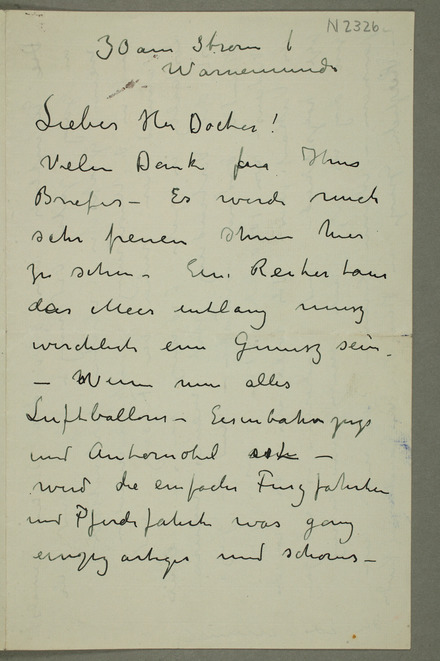 N 2326
30 am Strom 1
Warnemunde
Lieber Her Docter!
Vielen Dank fur Ihres
Briefes – Es wurde mich
sehr freuen Ihnen hier
zu sehen – Eine Reiter tour
das Meer entlang musz
wircklich ein Genusz sein.
– Wenn nun alles
Luftballons – Eisenbahnzugs
und Automobil –
wird die einfache fahrten
und Pferdefahrte was ganz
einzig artiges und schones –